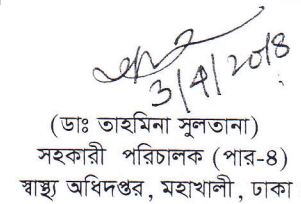 3/4/2018
(ডাঃ তাহমিনা সুলতানা)
সহকারী পরিচালক (পার-৪)
স্বাস্থ্য অধিদপ্তর, মহাখালী, ঢাকা